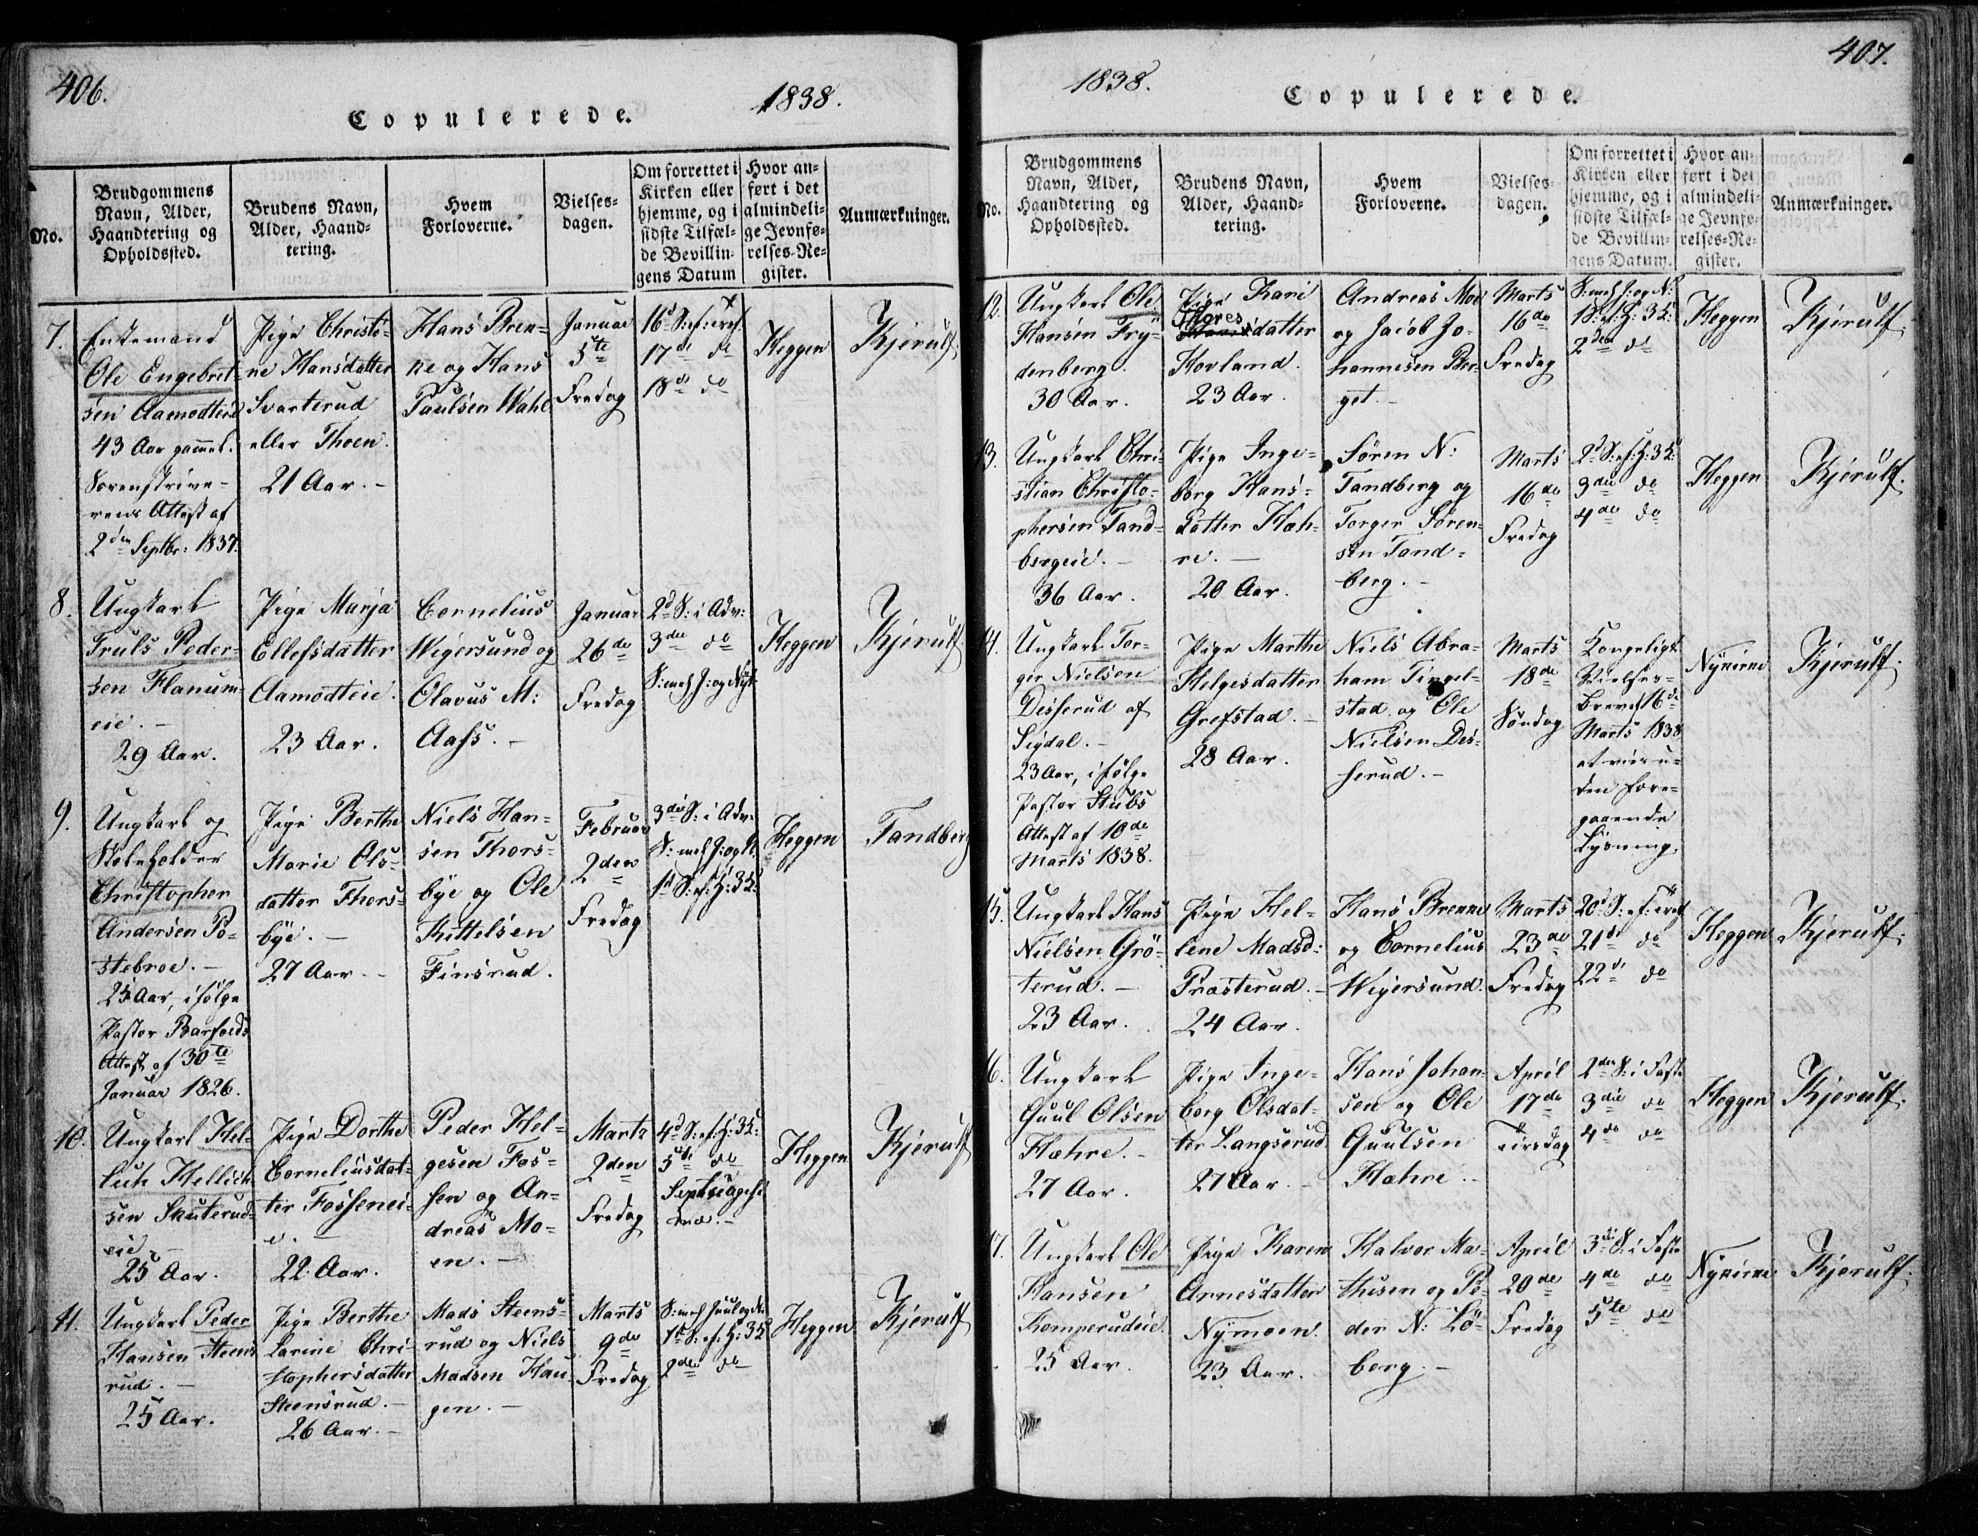 406.
1838.
Copulerede.
No.
Brudgommens
Navn, Alder,
Haandtering og
Opholdssted.
Brudens Navn,
Alder, Haand-
tering.
Hvem
Forloverne.
Vielses-
dagen.
Om forrettet i
Kirken eller
hjemme, og i
sidste Tilfæl-
de Bevillin-
gens Datum
Hvor an-
ført i det
almindeli-
ge Jevnfø-
relses-Re-
gister.
Anmærkninger.
7.
Enkemand
Ole Engebret-
sen Aamodteie
43 Aar gammel.
Sorenskrive-
rens Attest af
2den Septbr: 1837.
Pige Christi-
ne Hansdatter
Svarterud
eller Thoen.
21 Aar. -
Hans Bren-
ne og Hans
Paulsen Wahl
Januar
5te
Fredag
16d S: ef: tref.
17d do
18d do
Heggen
Kjerulf.
8.
Ungkarl
Truls Peder-
sen Flanum-
eie. -
29 Aar.
Pige Marja
Ellefsdatter
Aamodteie.
23 Aar.
Cornelius
Wegersund og
Olavus M:
Aass. -
Januar
26de
Fredag
2d S: i Adv:
3die do
S: mell J: og Nyt
Heggen
Kjerulf
9.
Ungkarl og
Skoleholder
Christopher
Andersen Po-
stebroe. -
25 Aar, ifølge
Pastor Barfoeds
Attest af 30te
Januar 1826.
Pige Berthe
Marie Ols-
datter Thors-
bye. -
27 Aar. -
Niels Han-
sen Thors-
bye og Ole
Kittelsen
Finsrud.
Februar
2den
Fredag
3die S: i Adv:
S: mell J: og N:
1d S: ef: H: 3K:
Heggen
Tandberg
10.
Ungkarl Hel-
lich Hellich-
sen Skuterud-
eie. -
25 Aar.
Pige Dorthe
Corneliusdat-
ter Fossenei-
e. -
22 Aar.
Peder Hel-
gesen Fos-
sen og An-
dreas Mo-
en. -
Marts
2den
Fredag
4d S: ef: H: 3K:
5te do
Septuagesi
mæ. -
Heggen
Kjerulf
11.
Ungkarl Peder
Hansen Steens
rud. -
25 Aar.
Pige Berthe
Larine Chri-
stophersdatter
Steensrud. -
26 Aar. -
Mads Steens-
rud og Niels
Madsen Hau-
gen. -
Marts
9de
Fredag
S: mell Juul og N:
1d S: ef: H: 3K
2den do
Heggen
Kjerulf
407.
1838.
Copulerede.
No.
Brudgommens
Navn, Alder,
Haandtering og
Opholdssted.
Brudens Navn,
Alder, Haand-
tering.
Hvem
Forloverne.
Vielses-
dagen.
Om forrettet i
Kirken eller
hjemme, og i
sidste Tilfæl-
de Bevillin-
gens Datum.
Hvor an-
ført i det
almindeli-
ge Jevnfø-
relses-Re-
gister.
Anmærkninger.
12.
Ungkarl Ole
Hansen Fry-
denberg.
30 Aar.
Pige Kari
Thores
datter
Hovland.
23 Aar.
Andreas Moe
og Jacob Jo-
hannesen Ber-
get. -
Marts
16de
Fredag
S: mell J: og N:
1S: ef: H: 3K:
2den do
Heggen
Kjerulf.
13.
Ungkarl Chri-
stian Christo-
phersen Tand-
bergeie. -
36 Aar.
Pige Inge-
borg Hans-
datter Hæh-
re. -
20 Aar.
Søren N:
Tandberg og
Torger Søren-
sen Tand-
berg. -
Marts
16de
Fredag
2d S: ef: H: 3K:
3die do
4de do
Heggen
Kjerulf.
14.
Ungkarl Tor-
ger Nielsen
Disserud af
Sigdal. -
23 Aar, ifølge
Pastor Stubs
Attest af 10de
Marts 1838.
Pige Marthe
Helgesdatter
Grefstad. -
28 Aar.
Niels Abra-
ham Tingel-
stad og Ole
Nielsen Dis-
serud. -
Marts
18de
Søndag
Kongeligt
Vielses-
Brev af 16de
Marts 1838
at vies u-
den fore-
gaaende
Lysning.
Nykirke
Kjerulf.
15.
Ungkarl Hans
Nielsen Grö-
terud. -
23 Aar.
Pige Hel-
lene Madsd:
Præsterud. -
24 Aar.
Hans Brenne
og Cornelius
Wegersund.
Marts
23de
Fredag
20d S: ef: tref
21d do
22d do
Heggen
Kjerulf.
16.
Ungkarl
Guul Olsen
Hæhre. -
27 Aar.
Pige Inge-
borg Olsdat-
ter Langserud
27 Aar. -
Hans Johan-
sen og Ole
Guulsen
Hæhre. -
April
17de
Tirsdag
2den S: i Faste
3die do
4de do
Heggen
Kjerulf.
17.
Ungkarl Ole
Hansen
Komperudeie.
25 Aar.
Pige Karen
Arnesdatter
Nymoen.
23 Aar.
Halvor Ma-
thisen og Pe-
der N: Lö-
berg. -
April
20de
Fredag
3die S: i Faste
4de do
5te do
Nykirke
Kjerulf.